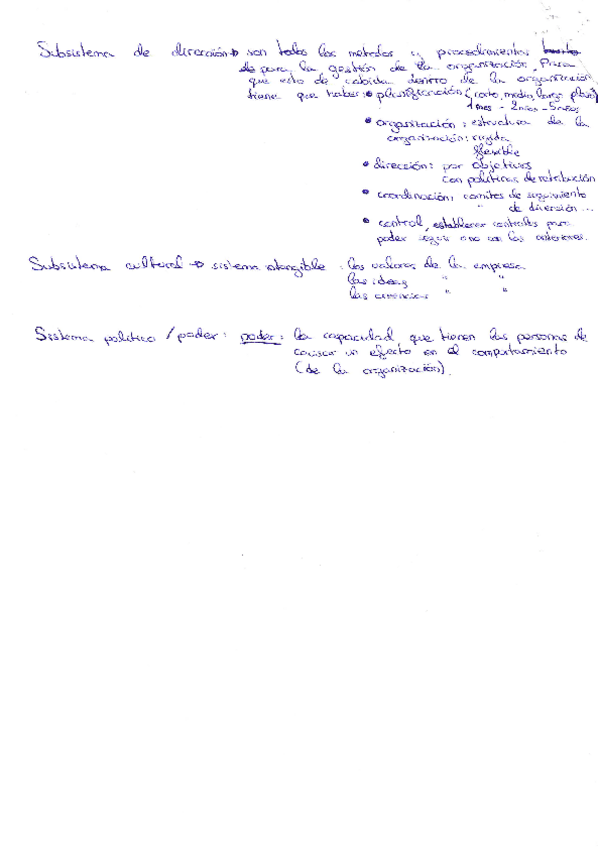 Subsistema de dirección → son todos los metodos y procedimientos
para la gestión de la organización. Para
que esto de cabida dentro de la organización
tiene que haber: • planificación (corto, medio, largo plazo)
1 mes - 2 años - 5 años
• organización: estructura de la
organización: rigida
flexible
• dirección: por objetivos
con politicas de retribución
• coordinación, comites de seguimiento
" de dirección...
• control, establecer controles para
poder seguir uno con los anteriores.
Subsistema cultural → sistema intangible: los valores de la empresa
las ideas " "
las creencias " "
Sistema politico / poder: poder: la capacidad que tienen las personas de
causar un efecto en el comportamiento
(de la organización).